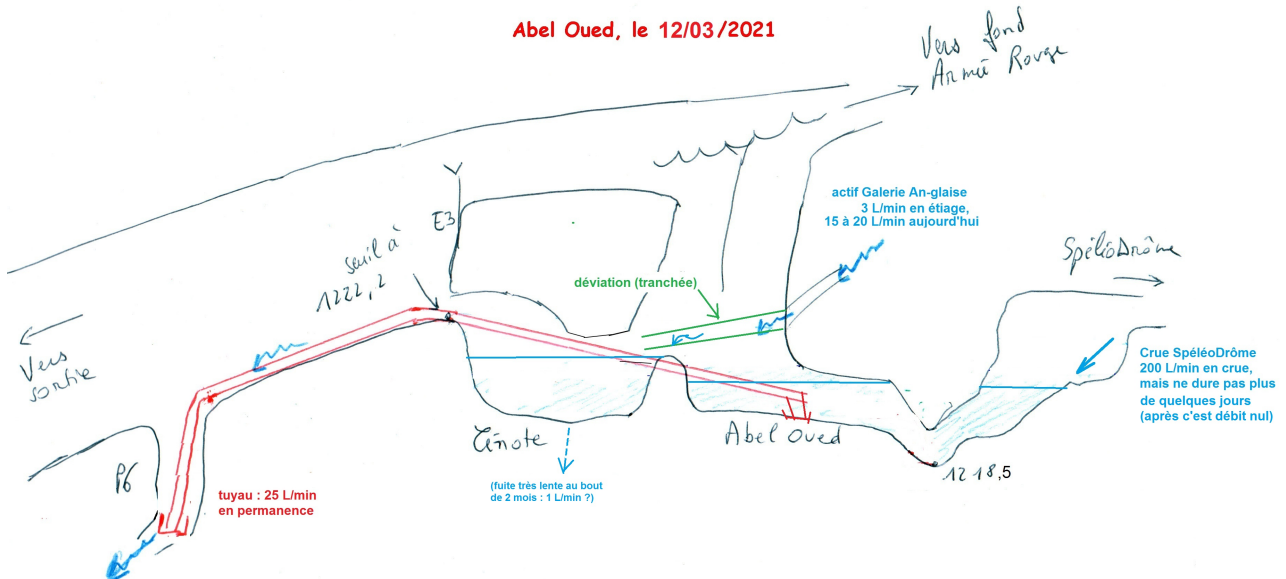 Abel Oued, le 12/03/2021
Vers fond
Armée Rouge
actif Galerie An-glaise
3 L/min en étiage,
15 à 20 L/min aujourd'hui
E3
seuil à
1222,2
SpéléoDrôme
déviation (tranchée)
Vers
sortie
Crue SpéléoDrôme
200 L/min en crue,
mais ne dure pas plus
de quelques jours
(après c'est débit nul)
Cénote
Abel Oued
1218,5
P6
tuyau : 25 L/min
en permanence
(fuite très lente au bout
de 2 mois : 1 L/min ?)